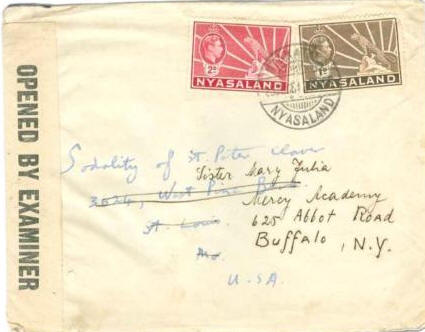 OPENED BY EXAMINER
2D
NYASALAND
1D
NYASALAND
NYASALAND
Sodality of St. Peter Claver
Sister Mary Julia
3624, West Pine
Mercy Academy
St. Louis
625 Abbot Road
Mo.
Buffalo, N.Y.
U.S.A.